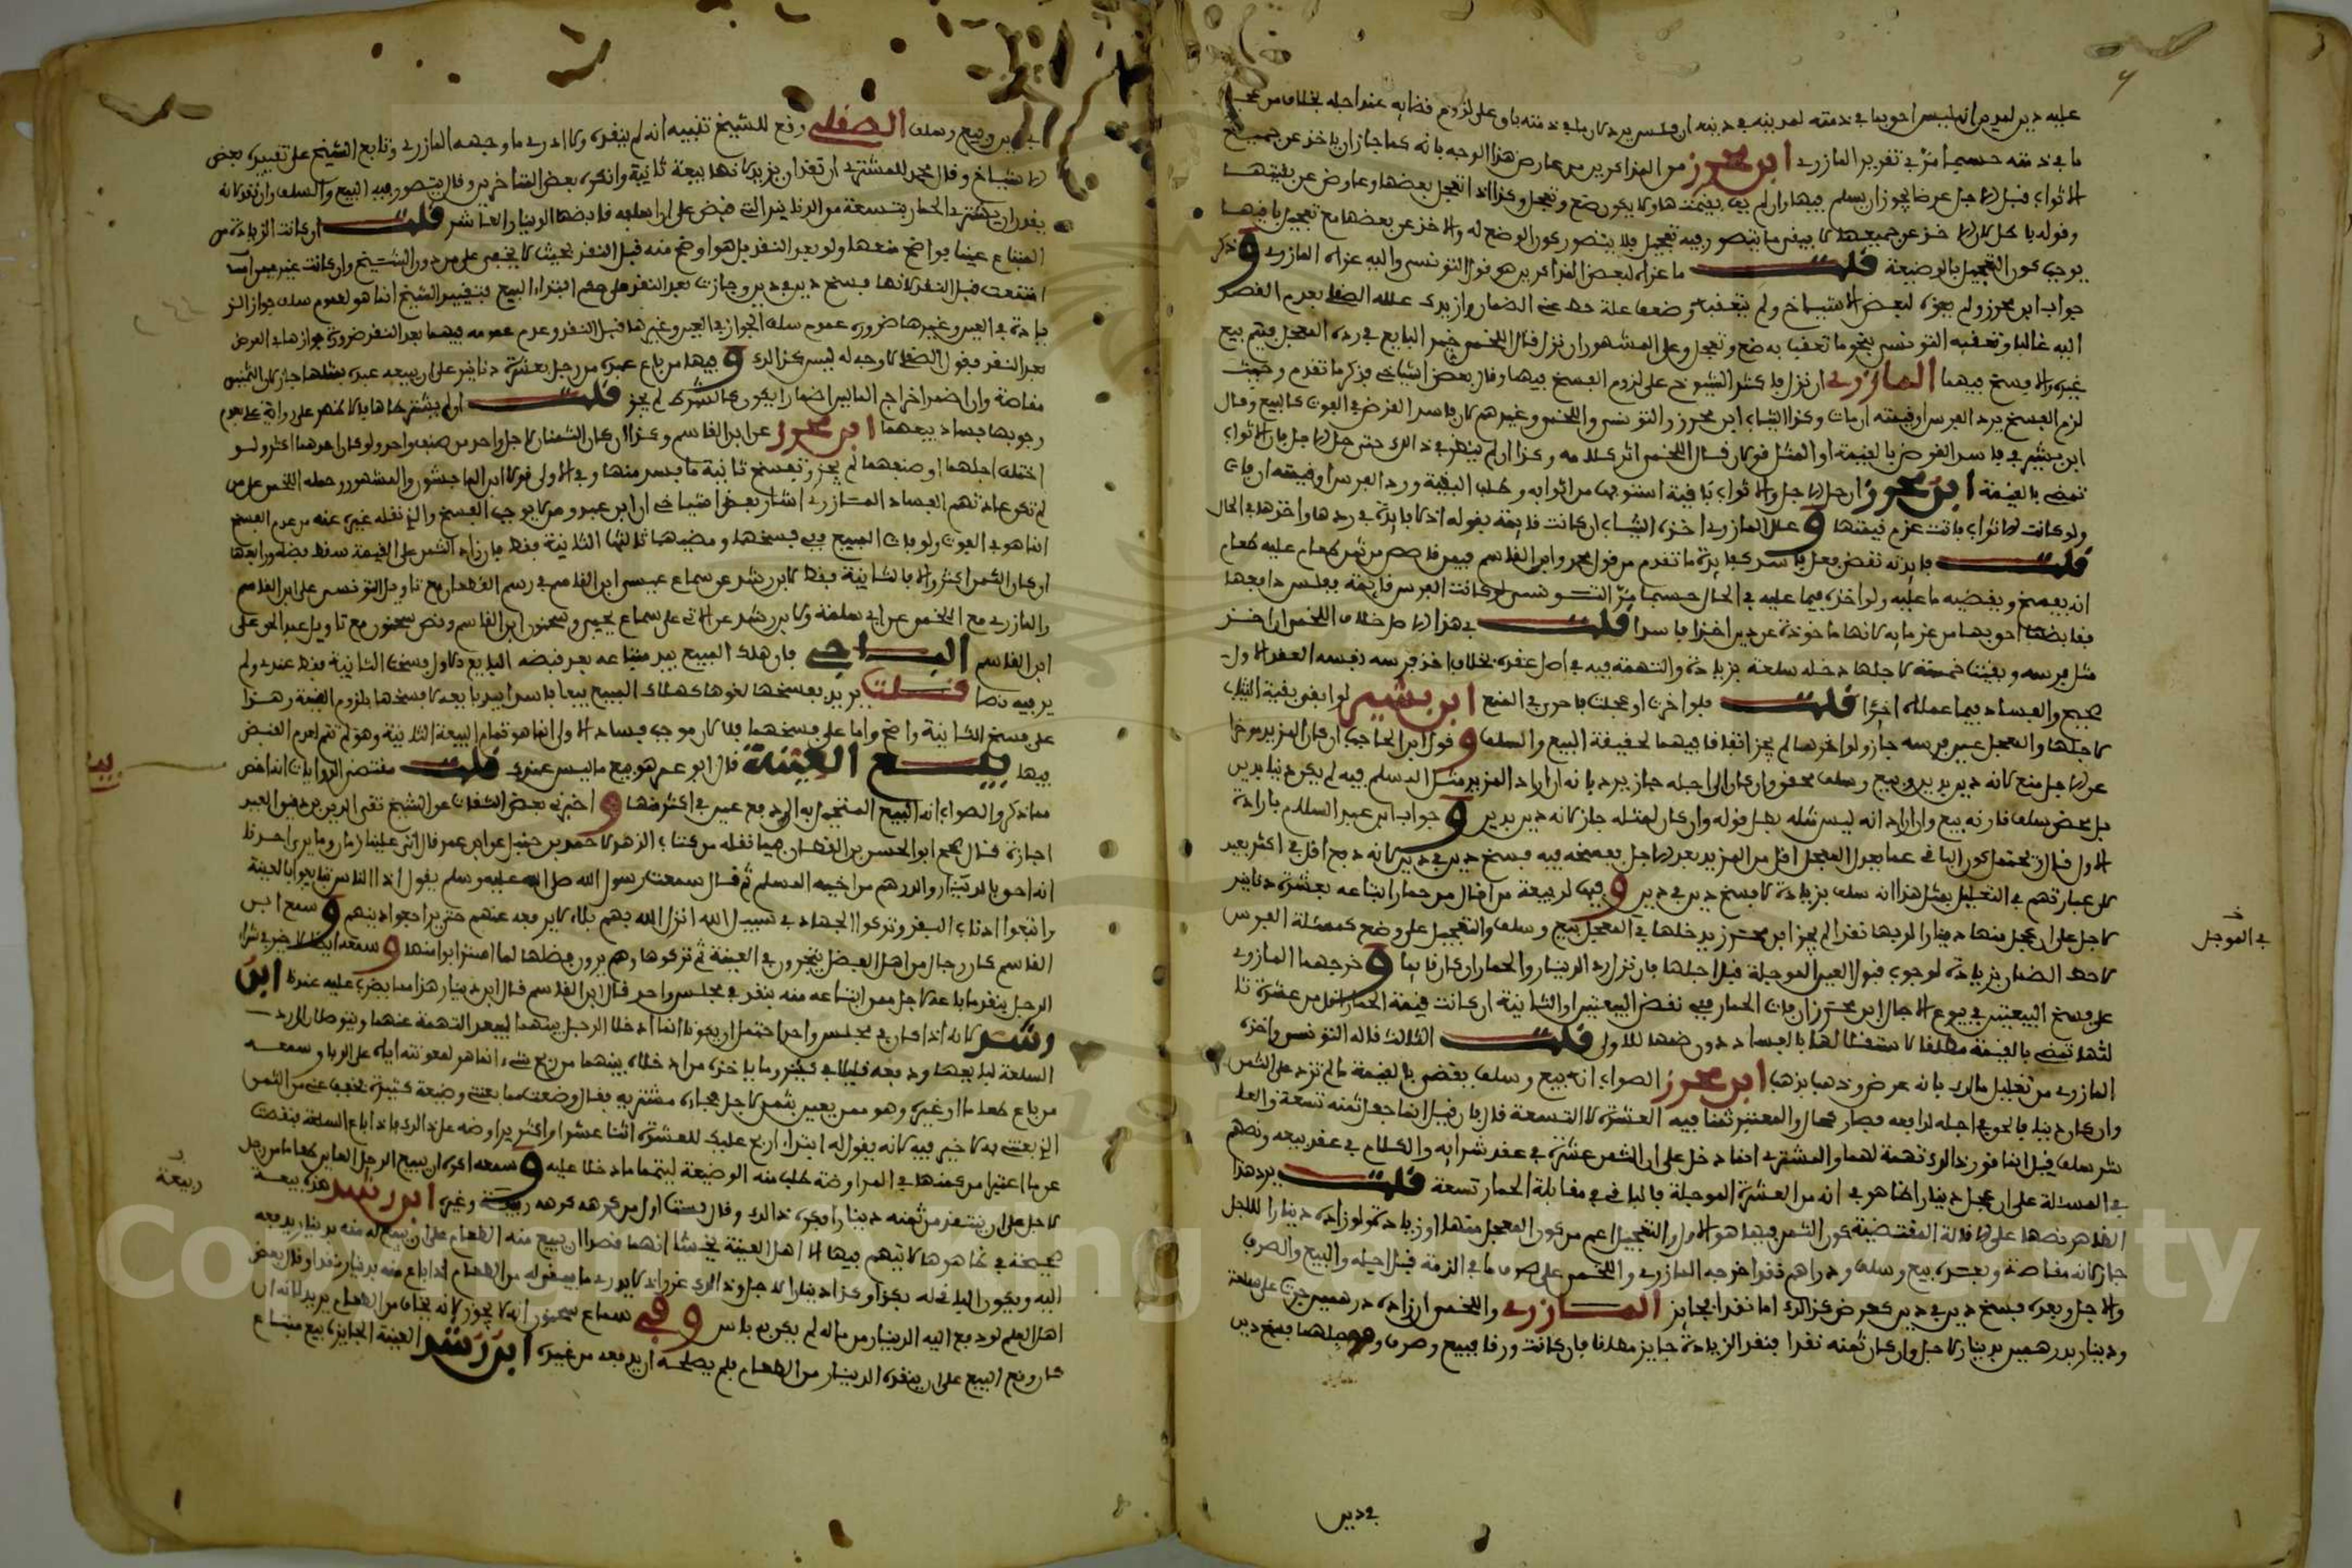 عليه دين لمدين انه ليس احق بما في ذمته لمدينه في دينه ان فلس يرد كان ما في ذمته باق على لزوم قضايه عند اجله بخلاف من عجل
ما في ذمته حسبما مر في تقرير المازري ابن محرز من المذاكرين من عارض هذا الوجه بانه كما جاز ان ياخذ عن جميع
الاثواب قبل الاجل عرضا يجوز ان يسلم فيها وان لم يف بقيمتها ولا يكون ضع وتعجل وكذا اذا تعجل بعضها وعاوض عن بقيتها
وقوله با كل لان الاخذ عن جميعها لا يبقى ما يتصور فيه تعجيل فلا يتصور كون الوضع له والاخذ عن بعضها مع تعجيل باقيها
يوجب كون التعجيل بالوضيعة قلت ما عزاه لبعض المذاكرين هو قول التونسي واليه عزاه المازري وذكر
جواب ابن محرز ولم يعزه لبعض الاشياخ ولم يتعقبه وضعف علة حط عني الضمان وازيدك علله الصقلي بعدم القصد
اليه غالبا وتعقبه التونسي بنحو ما تعقب به ضع وتعجل وعلى المشهور ان نزل قال اللخمي خير البايع في رده المعجل فيتم بيع
غيره والا فسخ فيهما المازري ان نزل فاكثر الشيوخ على لزوم الفسخ فيها وقال بعض اشياخي فذكر ما تقدم وحيث
لزم الفسخ يرد الفرس او قيمته ان مات وكذا الثياب ابن محرز والتونسي واللخمي وغيرهم لان فاسد القرض في الفوت كالبيع وقال
ابن بشير في فاسد القرض بالقيمة او المثل قولان قال اللخمي اثر كلامه وكذا ان لم ينظر في ذلك حتى حل الاجل فان الاثواب
تمضي بالقيمة ابن محرز ان حل الاجل والاثواب باقية استوفى بها من اثوابه وطلب البقية ورد الفرس او قيمته ان فات
ولو كانت الاثواب فاتت غرم قيمتها وعلل المازري اخذه الثياب ان كانت قايمة بقوله اذ لا فايدة في ردها واخذها في الحال
قلت فايدته نقض فعل فاسد كفايدة ما تقدم من قول محمد وابن القاسم فيمن قاصص من ثمن طعام عليه طعام
انه يفسخ ويقضيه ما عليه ولو اخذه فيما عليه في الحال حسبما مر التونسي لو كانت الفرس قايمة ففلس دافعها
فقابضها احق بها من غرمايه لانها ماخوذة عن دين اخذا فاسدا قلت في هذا الاصل خلاف اللخمي ان اخذ
مثل فرسه وبقيت خمسة لاجلها دخله سلعة بزيادة والتهمة فيه في اصل عقده بخلاف اخذ فرسه نفسه العقد الاول
صحيح والفساد فيما عملاه اخرا قلت فلو اخرت او عجلت فاحرى في المنع ابن بشير لو ابقى بقية الثياب
لاجلها والمعجل عين فرسه جاز ولو اخرها لم يجز اتفاقا فيهما لحقيقة البيع والسلف وقول ابن الحاجب ان كان المزيد مؤخرا
عن الاجل منع لانه دين بدين وبيع وسلف محقق وان كان الى اجله جاز يرد بانه ان اراد المزيد مثل المسلم فيه لم يكن دينا بدين
بل محض سلف قارنه بيع وان اراد انه ليس مثله بطل قوله وان كان لمثله جاز لانه دين بدين وجواب ابن عبد السلام بارادة
الاول قال ويحتمل كون الباقي عما بعد المعجل اقل من المزيد بعد الاجل بعضه فيه فسخ دين في دين لانه دفع اقل في اكثر بعيد
كل عبارتهم في التعليل بمثل هذا انه سلف بزيادة لا فسخ دين في دين وفيها لربيعة من اقال من حمار ابتاعه بعشرة دنانير
لاجل على ان عجل منها دينارا لربها نقدا لم يجز ابن محرز يدخلها في المعجل بيع وسلف والتعجيل على وضع كمسئلة الفرس
لاحط الضمان بزيادة لوجوب قبول العين الموجلة قبل اجلها فان نزل رد الدينار والحمار ان كان قايما وخرجهما المازري
على فسخ البيعتين في بيوع الاجال ابن محرز ان فات الحمار ففي نقض البيعتين او الثانية ان كانت قيمة الحمار اقل من عشرة ثا
لثها تمضي بالقيمة مطلقا لاستقلالها بالفساد دون ضمها للاولى قلت الثالث قاله التونسي واخذه
المازري من تعليل مالك بانه عرض وذهب بذهب ابن محرز الصواب انه بيع وسلف يقضى بالقيمة ما لم تزد على الثمن
وان كان دينا فالحق في اجله لدافعه فصار كالحال والمعتبر ثمنا فيه العشرة لا التسعة قال فان قيل انما جعل ثمنه تسعة والعا
شر سلف قيل انما قدر ذلك تهمة لهما والمشتري انما دخل على ان الثمن عشرة في عقد شرايه والكلام في عقد بيعه ونصهم
في المسئلة على ان عجل دينارا ظاهر في انه من العشرة الموجلة فالباقي في مقابلة الحمار تسعة قلت يرد هذا
الظاهر نصها على الاقالة المقتضية كون الثمن فيهما هو الاول والتعجيل اعم من كون المعجل مثلها او زيادة ولو زاده دينارا للاجل
جاز لانه مقاصة وبعده بيع وسلف ودراهم نقدا خرجه المازري واللخمي على صرف ما في الذمة قبل اجله والبيع والصرف
والاجل وبعده فسخ دين في دين كعرض كذلك اما نقدا فجايز المازري واللخمي ان زاده درهمين جرت على سلعة
ودينار بدرهمين بدينار لاجل وان كان ثمنه نقدا فنقد الزيادة جايز مطلقا فان كانت ورقا فبيع وصرف وموجلها فسخ دين
في الموجل
في دين
في دين وبيع وسلف الصقلي وقع للشيخ تقييد انه لم ينقده ولا ادري ما وجهه المازري وتابع الشيخ على تقييده بعض
الاشياخ وقال يجوز للمشتري ان نقد ان يزيد لانها بيعة ثانية وانكره بعض المتاخرين وقال يتصور فيه البيع والسلف وان نقد لانه
يقدر ان مشتري الحمار بتسعة من الدنانير التي قبض على ان اسلفه قابضها الدينار العاشر قلت ان كانت الزيادة من
المبتاع عينا فواضح منعها ولو بعد النقد بل هو اوضح منه قبل النقد بحيث لا يخفى على من دون الشيخ وان كانت غير عين امتنعت
امتنعت قبل النقد لانها فسخ دين في دين وجازت بعد النقد على حكم ابتداء البيع فتقييد الشيخ انما هو لعموم سلب جواز الز
يادة في العين وغيرها ضرورة عموم سلب الجواز في العين وغيرها قبل النقد وعدم عمومه فيهما بعد النقد ضرورة جوازها في العرض
بعد النقد فقول الصقلي لا وجه له ليس كذلك وفيها من باع عبده من رجل بعشرة دنانير على ان يبيعه عبده بمثلها جاز لان الثمنين
مقاصة وان اضمر اخراج المالين اضمارا يكون كالشرط لم يجز قلت ان لم يشترطاها فالاظهر على رواية عدم
وجوبها فساد بيعهما ابن محرز عن ابن القاسم وكذا ان كان الثمنان لاجل واحد من صنف واحد ولو كان احدهما اكثر ولو
اختلف اجلهما او صنفهما لم يجز وتفسخ ثانية ما فسد منها وفي الاولى قولا ابن الماجشون والمشهور وحمله اللخمي على من
لم تكن عادتهم الفساد المازري اشار بعض اشياخي ان ابن عبدوس لا يوجب الفسخ والذي نقله غيره عنه من عدم الفسخ
انما هو في الفوت ولو فات المبيع ففي فسخها ومضيها ثالثها الثانية فقط فان زاد الثمن على القيمة سقط بضمان دافعها
او كان الثمن اكثر والا بالثانية فقط لابن رشد عن سماع عيسى ابن القاسم في رسم القطعان مع تاويل التونسي على ابن القاسم
والمازري مع اللخمي عن ابي سلمة ولابن رشد عن الاتي على سماع يحيى وسحنون ابن القاسم ونص سحنون مع تاويل عبد الحق على
ابن القاسم الباجي فان هلك المبيع بيد مبتاعه بعد قبضه البايع الاول فسخت الثانية فقط عندي ولم
ير فيه نصا قلت يريد بفسخها لغوها كهلاك المبيع بيعا فاسدا بيد بايعه لا فسخها بلزوم القيمة وهذا
على فسخ الثانية واضح واما على فسخهما فلا لان موجب فساد الاولى انما هو تمام البيعة الثانية وهو لم يتم لعدم القبض
فيها بيع العينة قال ابو عمر هو بيع ما ليس عندك قلت مقتضى الروايات انه اخص
مما ذكر والصواب انه البيع المتحيل به الى دفع عين في اكثر منها واخبرني بعض الثقات عن الشيخ تقي الدين بن دقيق العيد
اجازة قال صحح ابو الحسن بن القطان فيما نقله من كتاب الزهد لاحمد بن حنبل عن ابن عمر قال اتى علينا زمان وما يرى احدنا
انه احق بالدينار والدرهم من اخيه المسلم ثم قال سمعت رسول الله صلى الله عليه وسلم يقول اذا الناس تبايعوا بالعينة
واتبعوا اذناب البقر وتركوا الجهاد في سبيل الله انزل الله بهم بلاء لا يرفعه عنهم حتى يراجعوا دينهم وسمع ابن
القاسم كان رجال من اهل الفضل يتجرون في العينة ثم تركوها وهم يرون فضلها لما استرابوا منها وسمعه ايضا لا خير في شراء
الرجل بنقد ما باعه لاجل ممن ابتاعه منه بنقد في مجلس واحد قال ابن القاسم قال ابن دينار هذا مما يضرب عليه عندنا ابن
رشد لانه اذا كان في مجلس واحد احتمل ان يكونا انما ادخلا الرجل بينهما لتبعد التهمة عنهما وينوطان للرد
السلعة لبايعها ودفعه قليلا في كثير وما ياخذه من ادخلاه بينهما من ربح شيء انما هو لمعونته اياه على الربا وسمعه
من باع طعاما او غيره وهو ممن يعين بثمن لاجل فجاءه مشتريه فقال وضعت مما بعتني وضيعة كثيرة فخفف عني من الثمن
الذي بعتني به لا خير فيه لانه يقول له ابتداء اربح عليك للعشرة اثنا عشر او اكثر يراوضه على ذلك فاذا باع السلعة بنقصت
عن ما اعتبرا من ثمنها في المراوضة طلب منه الوضيعة ليتمما ما دخلا عليه وسمعه اكره ان يبيع الرجل العاين طعاما من رجل
لاجل على ان ينتقد من ثمنه دينارا فكره ذلك وقال مستثنا اول من كرهه كرهه ربيعة وغيره ابن رشد هذه بيعة
صحيحة في ظاهرها لا يتهم فيها الا اهل العينة فخشي انهما قصدا ان يبيع منه الطعام على ان يبيع له منه بدينار يدفعه
اليه ويكون الباقي له بكذا وكذا دينارا لاجل وذلك غرر اذ لا يدري ما يبقى له من الطعام اذا باع منه بدينار نقدا وقال بعض
اهل العلم لو دفع اليه الدينار من ماله لم يكن به باس وفي سماع سحنون انه لا يجوز لانه يخاف من الطعام يريد لانه ان
كان وقع البيع على ان ينقده الدينار من الطعام فلم يصلحه ان يدفعه من غيره ابن رشد العينة الجايزة بيع مبتاع
بيا
ربيعة